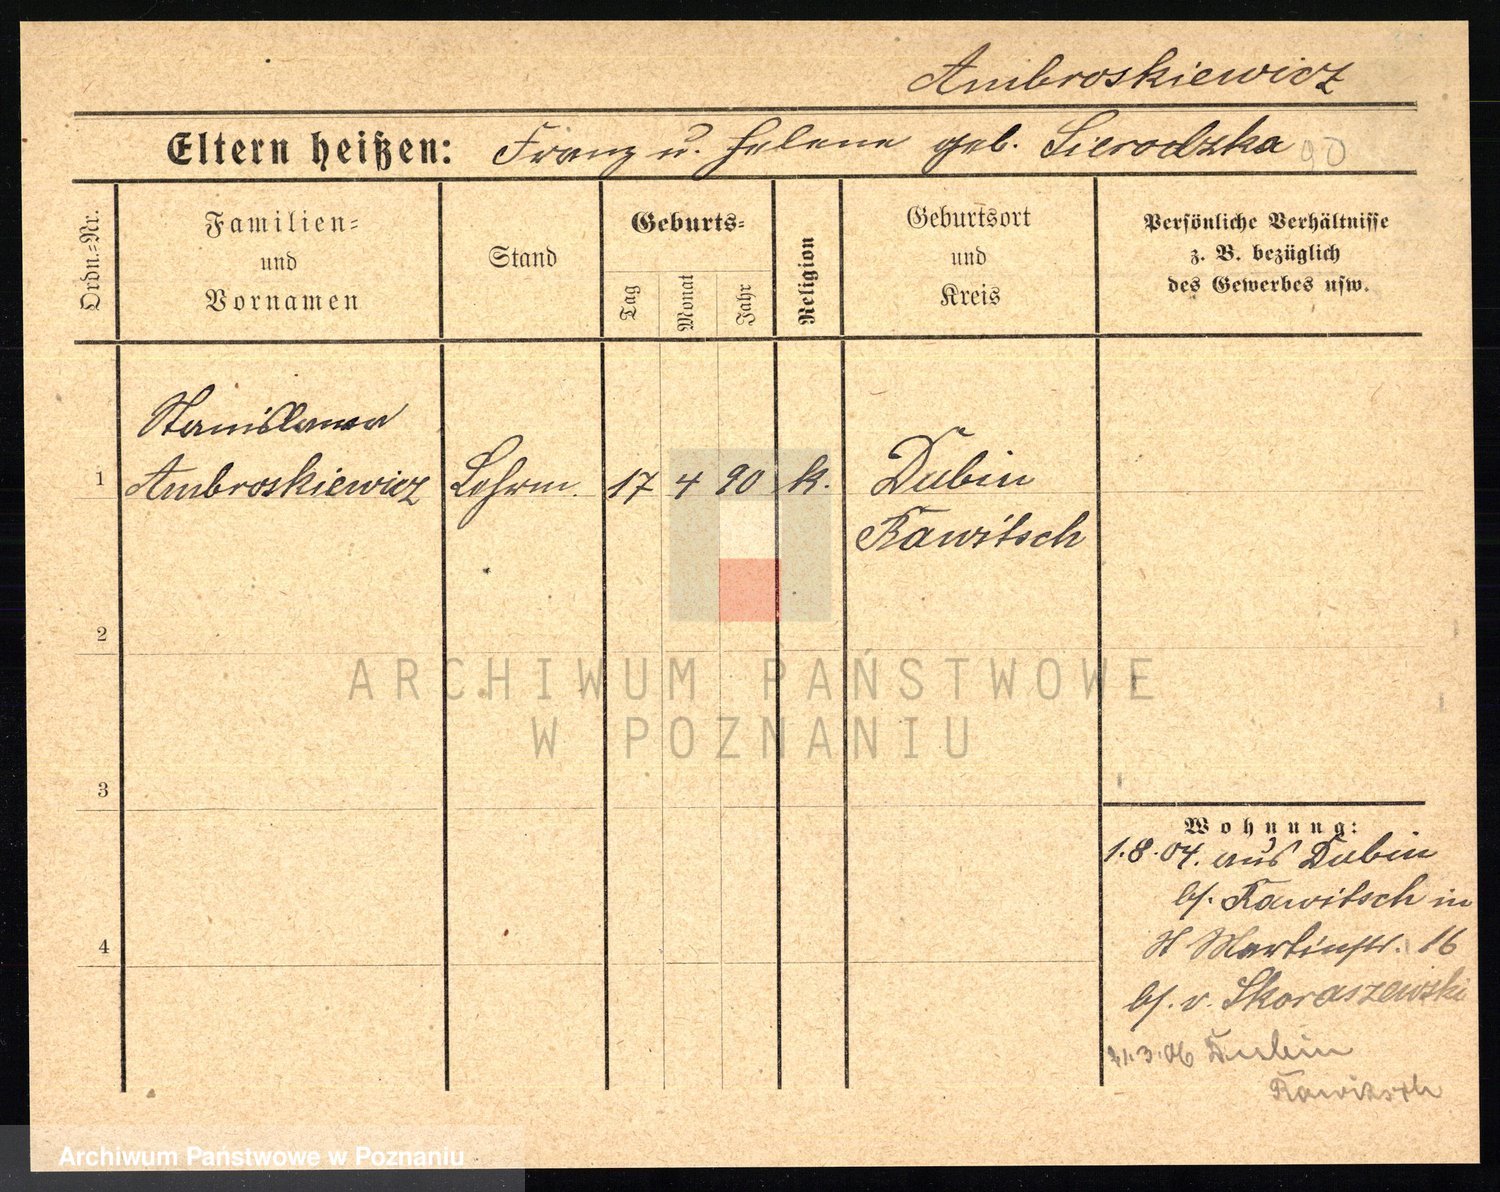 Ambroskiewicz
Eltern heißen: Franz u. Helene geb. Sierodzka 90
Ordn.=Nr.
Familien=
und
Vornamen
Stand
Geburts=
Tag
Monat
Jahr
Religion
Geburtsort
und
Kreis
Persönliche Verhältnisse
z. B. bezüglich
des Gewerbes usw.
Stanislawa
1 Ambroskiewicz Lehrm. 17 4 90 k. Dubin
Rawitsch
2
ARCHIWUM PAŃSTWOWE
W POZNANIU
3
Wohnung:
1.8.04. aus Dubin
b/. Rawitsch in
4
St Martinstr. 16
b/. v. Skoraszewski
21.3.06 Dubin
Rawitsch
Archiwum Państwowe w Poznaniu